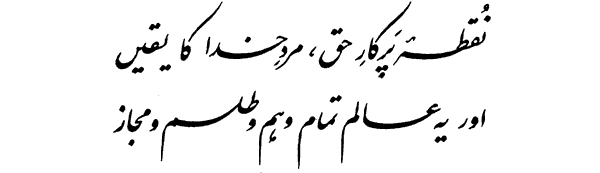 نُقطۂ پَرکارِ حق، مردِ خدا کا یقیں
اور یہ عالم تمام وہم و طلسم و مجاز